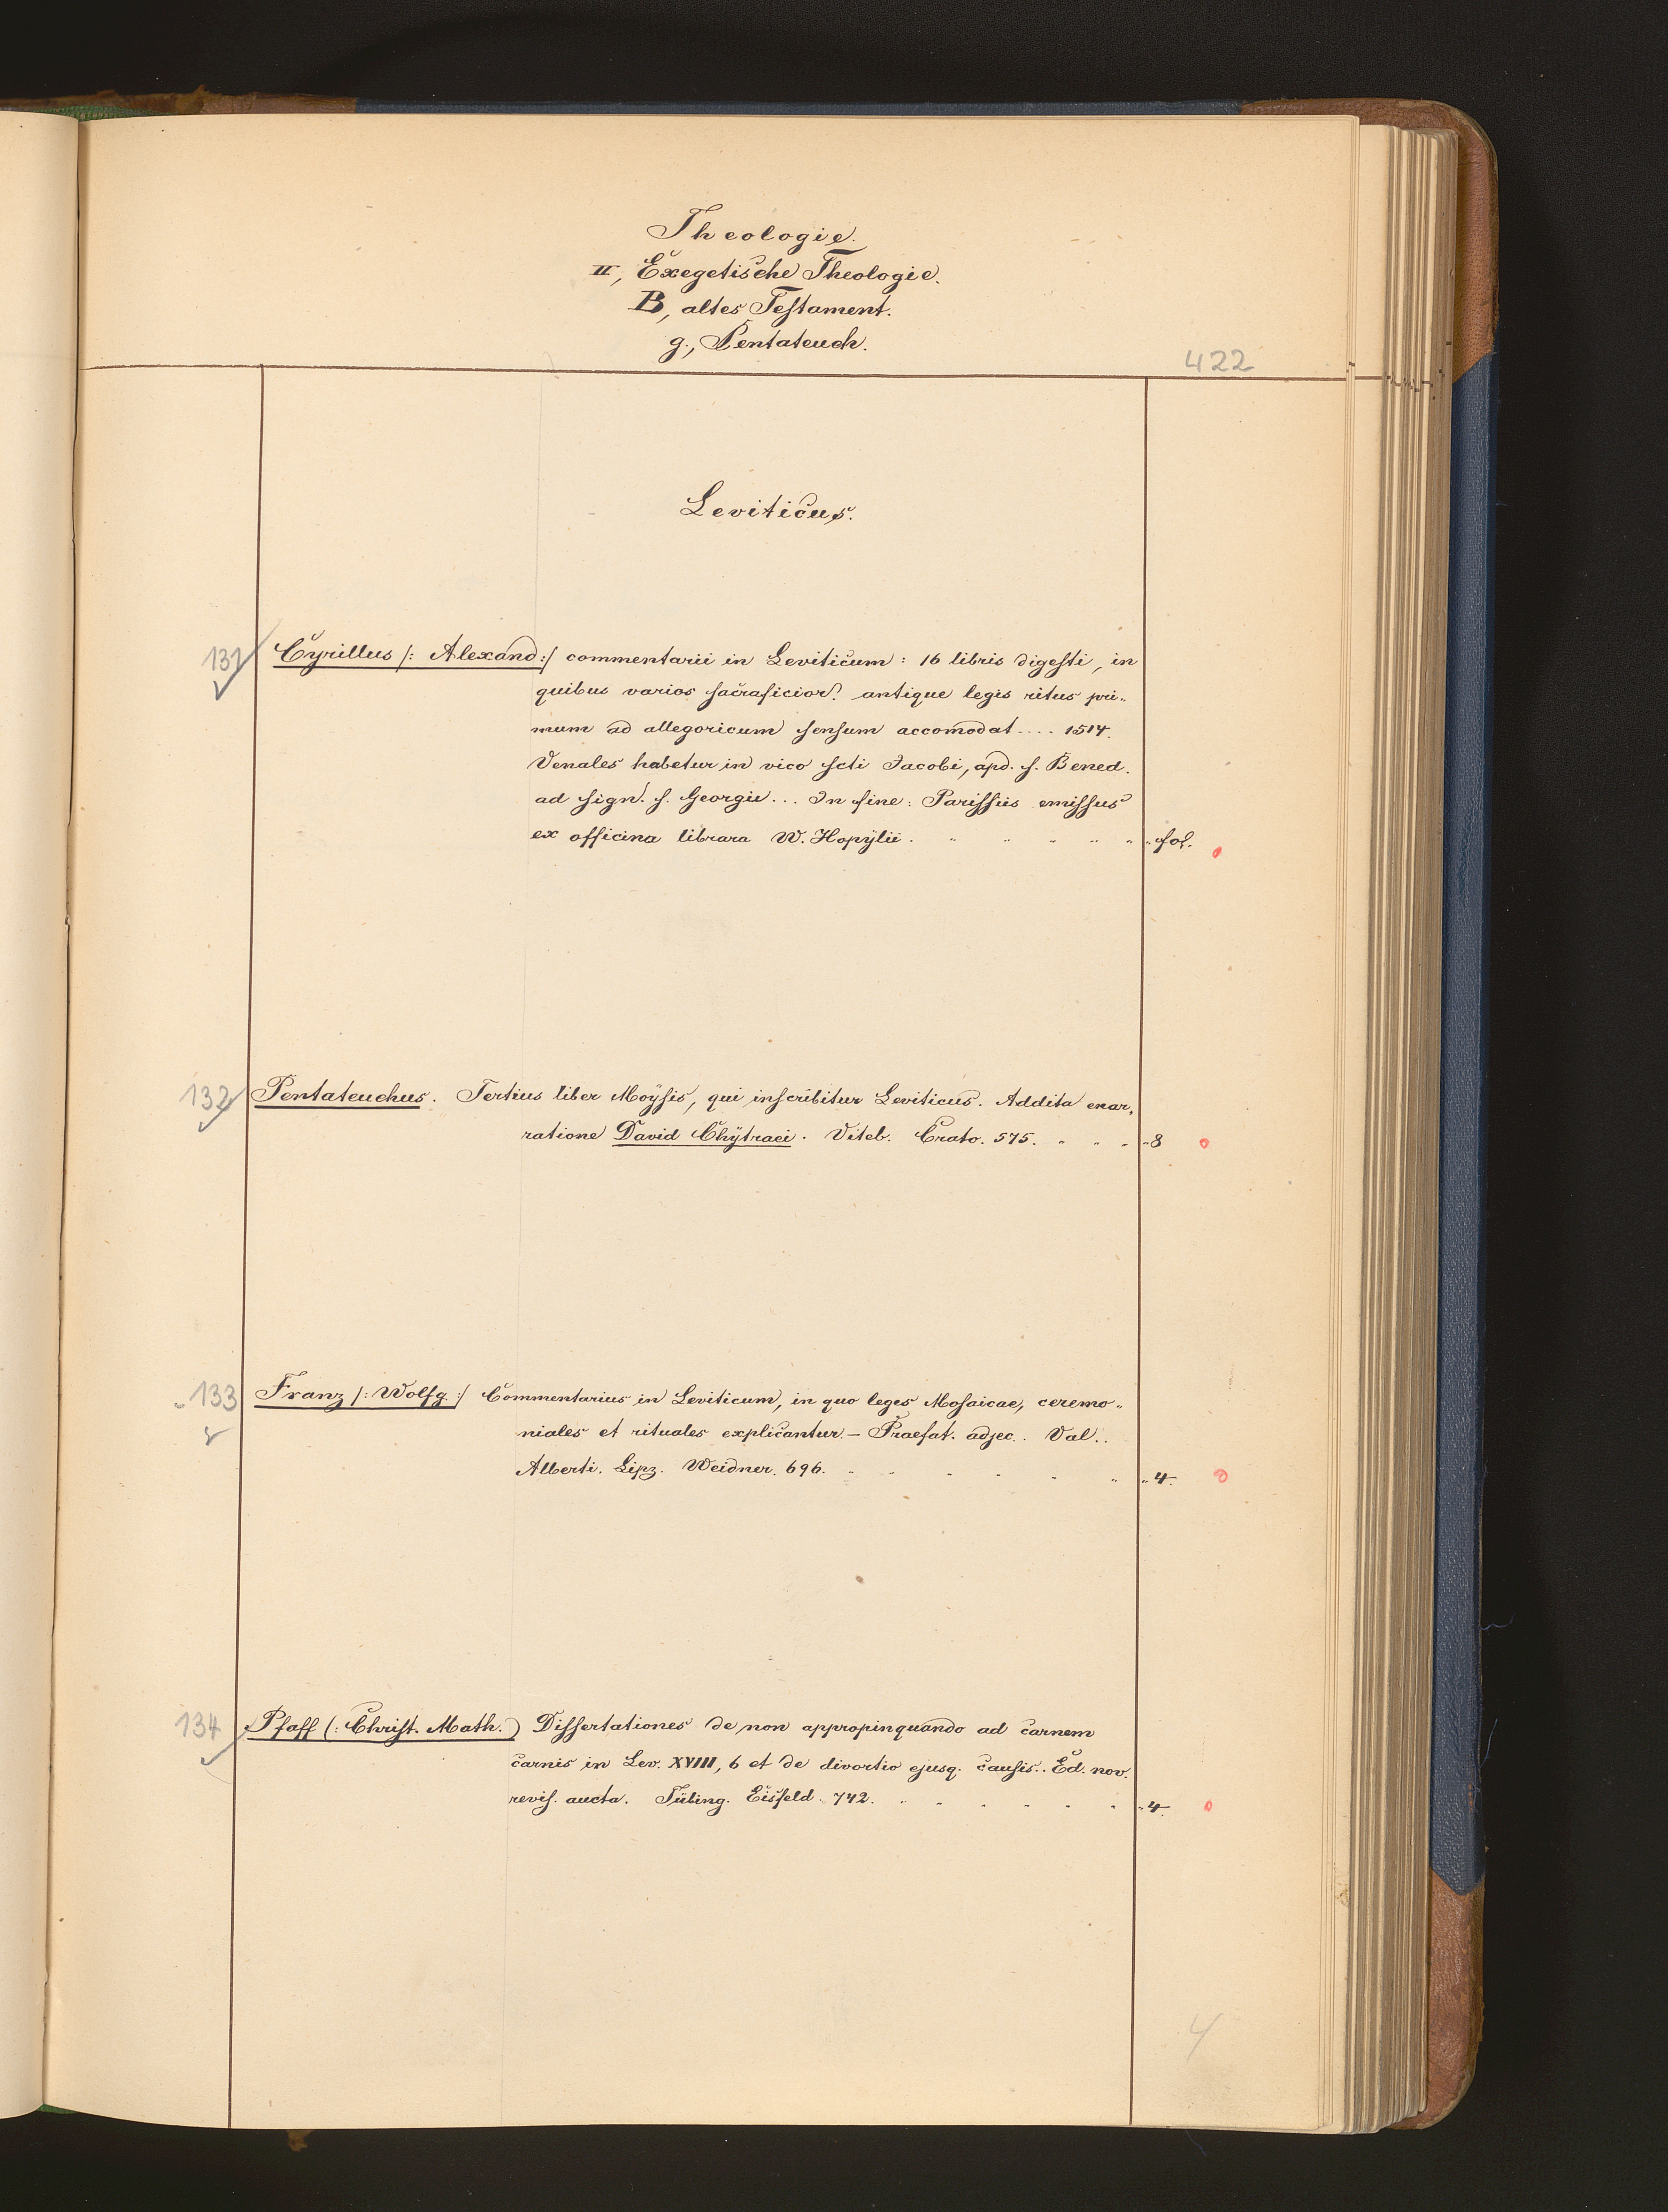 Theologie.
II, Exegetische Theologie.
B, altes Testament.
g., Pentateuch.
422
Leviticus.
131 Cyrillus /: Alexand :/ commentarii in Leviticum : 16 libris digesti, in
quibus varios sacraficior. antique legis ritus pri„
mum ad allegoricum sensum accomodat .... 1514.
Venales habetur in vico scti Jacobi, apd. s. Bened.
ad sign. s. Georgii ... In fine : Parissiis emissus
ex officina librara W. Hopÿlii . " " " " " " fol.
132 Pentateuchus. Tertius liber Moÿsis, qui inscribitur Leviticus. Addita enar„
ratione David Chÿtraei. Viteb. Crato. 575. " " " " 8
133 Franz /: Wolfg :/ Commentarius in Leviticum, in quo leges Mosaicae, ceremo„
niales et rituales explicantur. – Praefat. adjec.. Val..
Alberti. Lipz. Weidner. 696. " " " " " " " 4.
134 Pfaff (: Christ. Math.) Dissertationes de non appropinquando ad carnem
carnis in Lev. XVIII, 6 et de divortio ejusq. causis.. Ed. nov.
revis. aucta. Tübing. Eisfeld. 742. " " " " " " " 4.
4